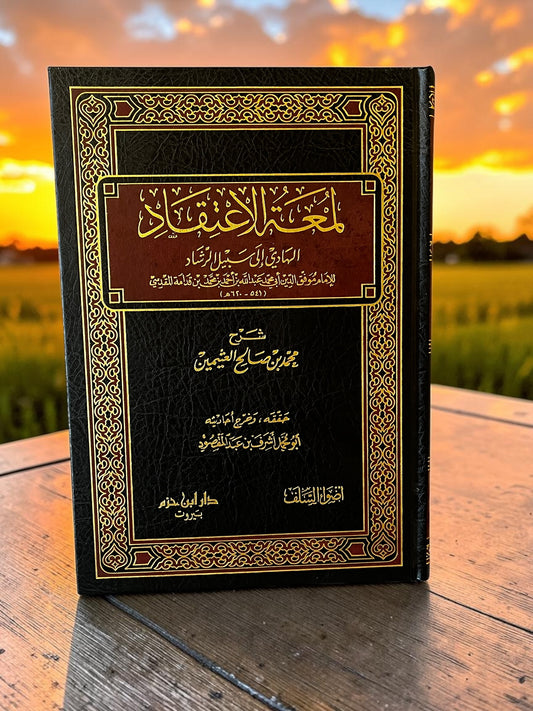 لمعة الاعتقاد
الهادي إلى سبيل الرشاد
للإمام موفق الدين أبي محمد عبد الله بن أحمد بن محمد بن قدامة المقدسي
(٥٤١ - ٦٢٠ هـ)
شرح
محمد بن صالح العثيمين
حققه، وخرج أحاديثه
أبو محمد أشرف بن عبد المقصود
أضواء السلف
دار ابن حزم
بيروت